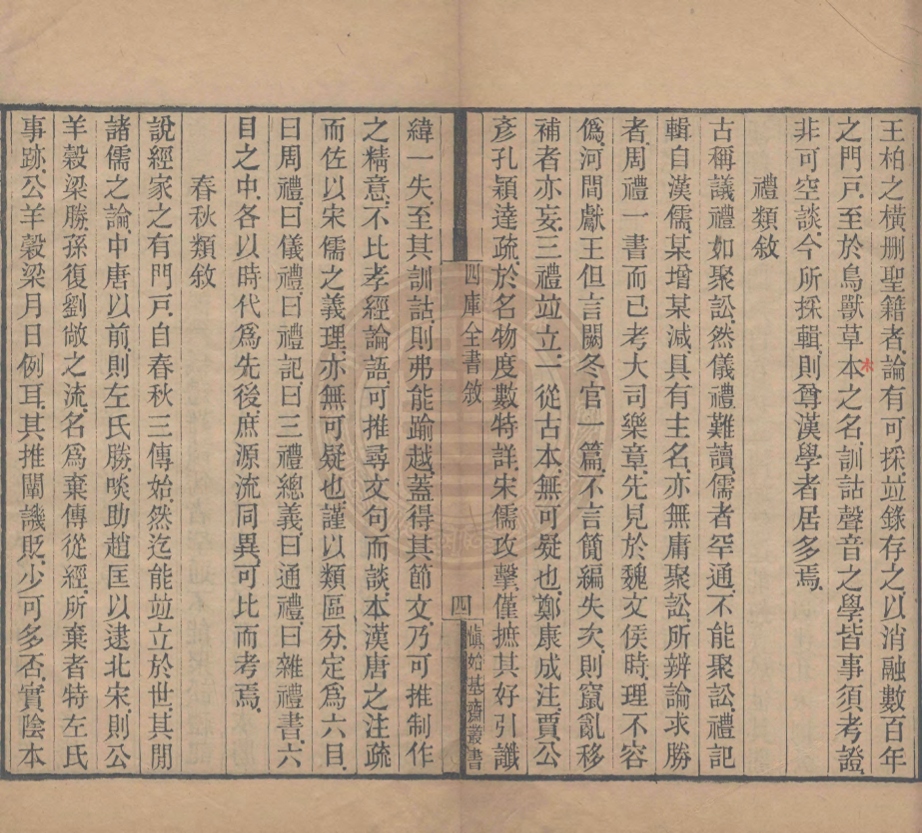 王柏之橫刪聖籍者、論有可採、竝錄存之、以消融數百年
之門戸、至於鳥獸草本之名、訓詁聲音之學、皆事須考證、
非可空談、今所採輯、則尊漢學者居多焉、
禮類敘
古稱議禮如聚訟、然儀禮難讀、儒者罕通、不能聚訟、禮記
輯自漢儒、某增某減、具有主名、亦無庸聚訟、所辨論求勝
者、周禮一書而已、考大司樂章、先見於魏文侯時、理不容
僞、河間獻王但言闕冬官一篇、不言簡編失次、則竄亂移
補者亦妄、三禮竝立、一從古本、無可疑也、鄭康成注、賈公
彥孔穎達疏、於名物度數特詳、宋儒攻擊、僅摭其好引讖
四庫全書敘
四
愼始基齋叢書
緯一失、至其訓詁、則弗能踰越、蓋得其節文、乃可推制作
之精意、不比孝經論語、可推尋文句而談、本漢唐之注疏、
而佐以宋儒之義理、亦無可疑也、謹以類區分、定爲六目、
曰周禮、曰儀禮、曰禮記、曰三禮總義、曰通禮、曰雜禮書、六
目之中、各以時代爲先後、庶源流同異、可比而考焉、
春秋類敘
說經家之有門戸、自春秋三傳始、然迄能竝立於世、其閒
諸儒之論、中唐以前、則左氏勝、啖助趙匡以逮北宋、則公
羊穀梁勝、孫復劉敞之流、名爲棄傳從經、所棄者特左氏
事跡、公羊穀梁月日例耳、其推闡譏貶、少可多否、實陰本